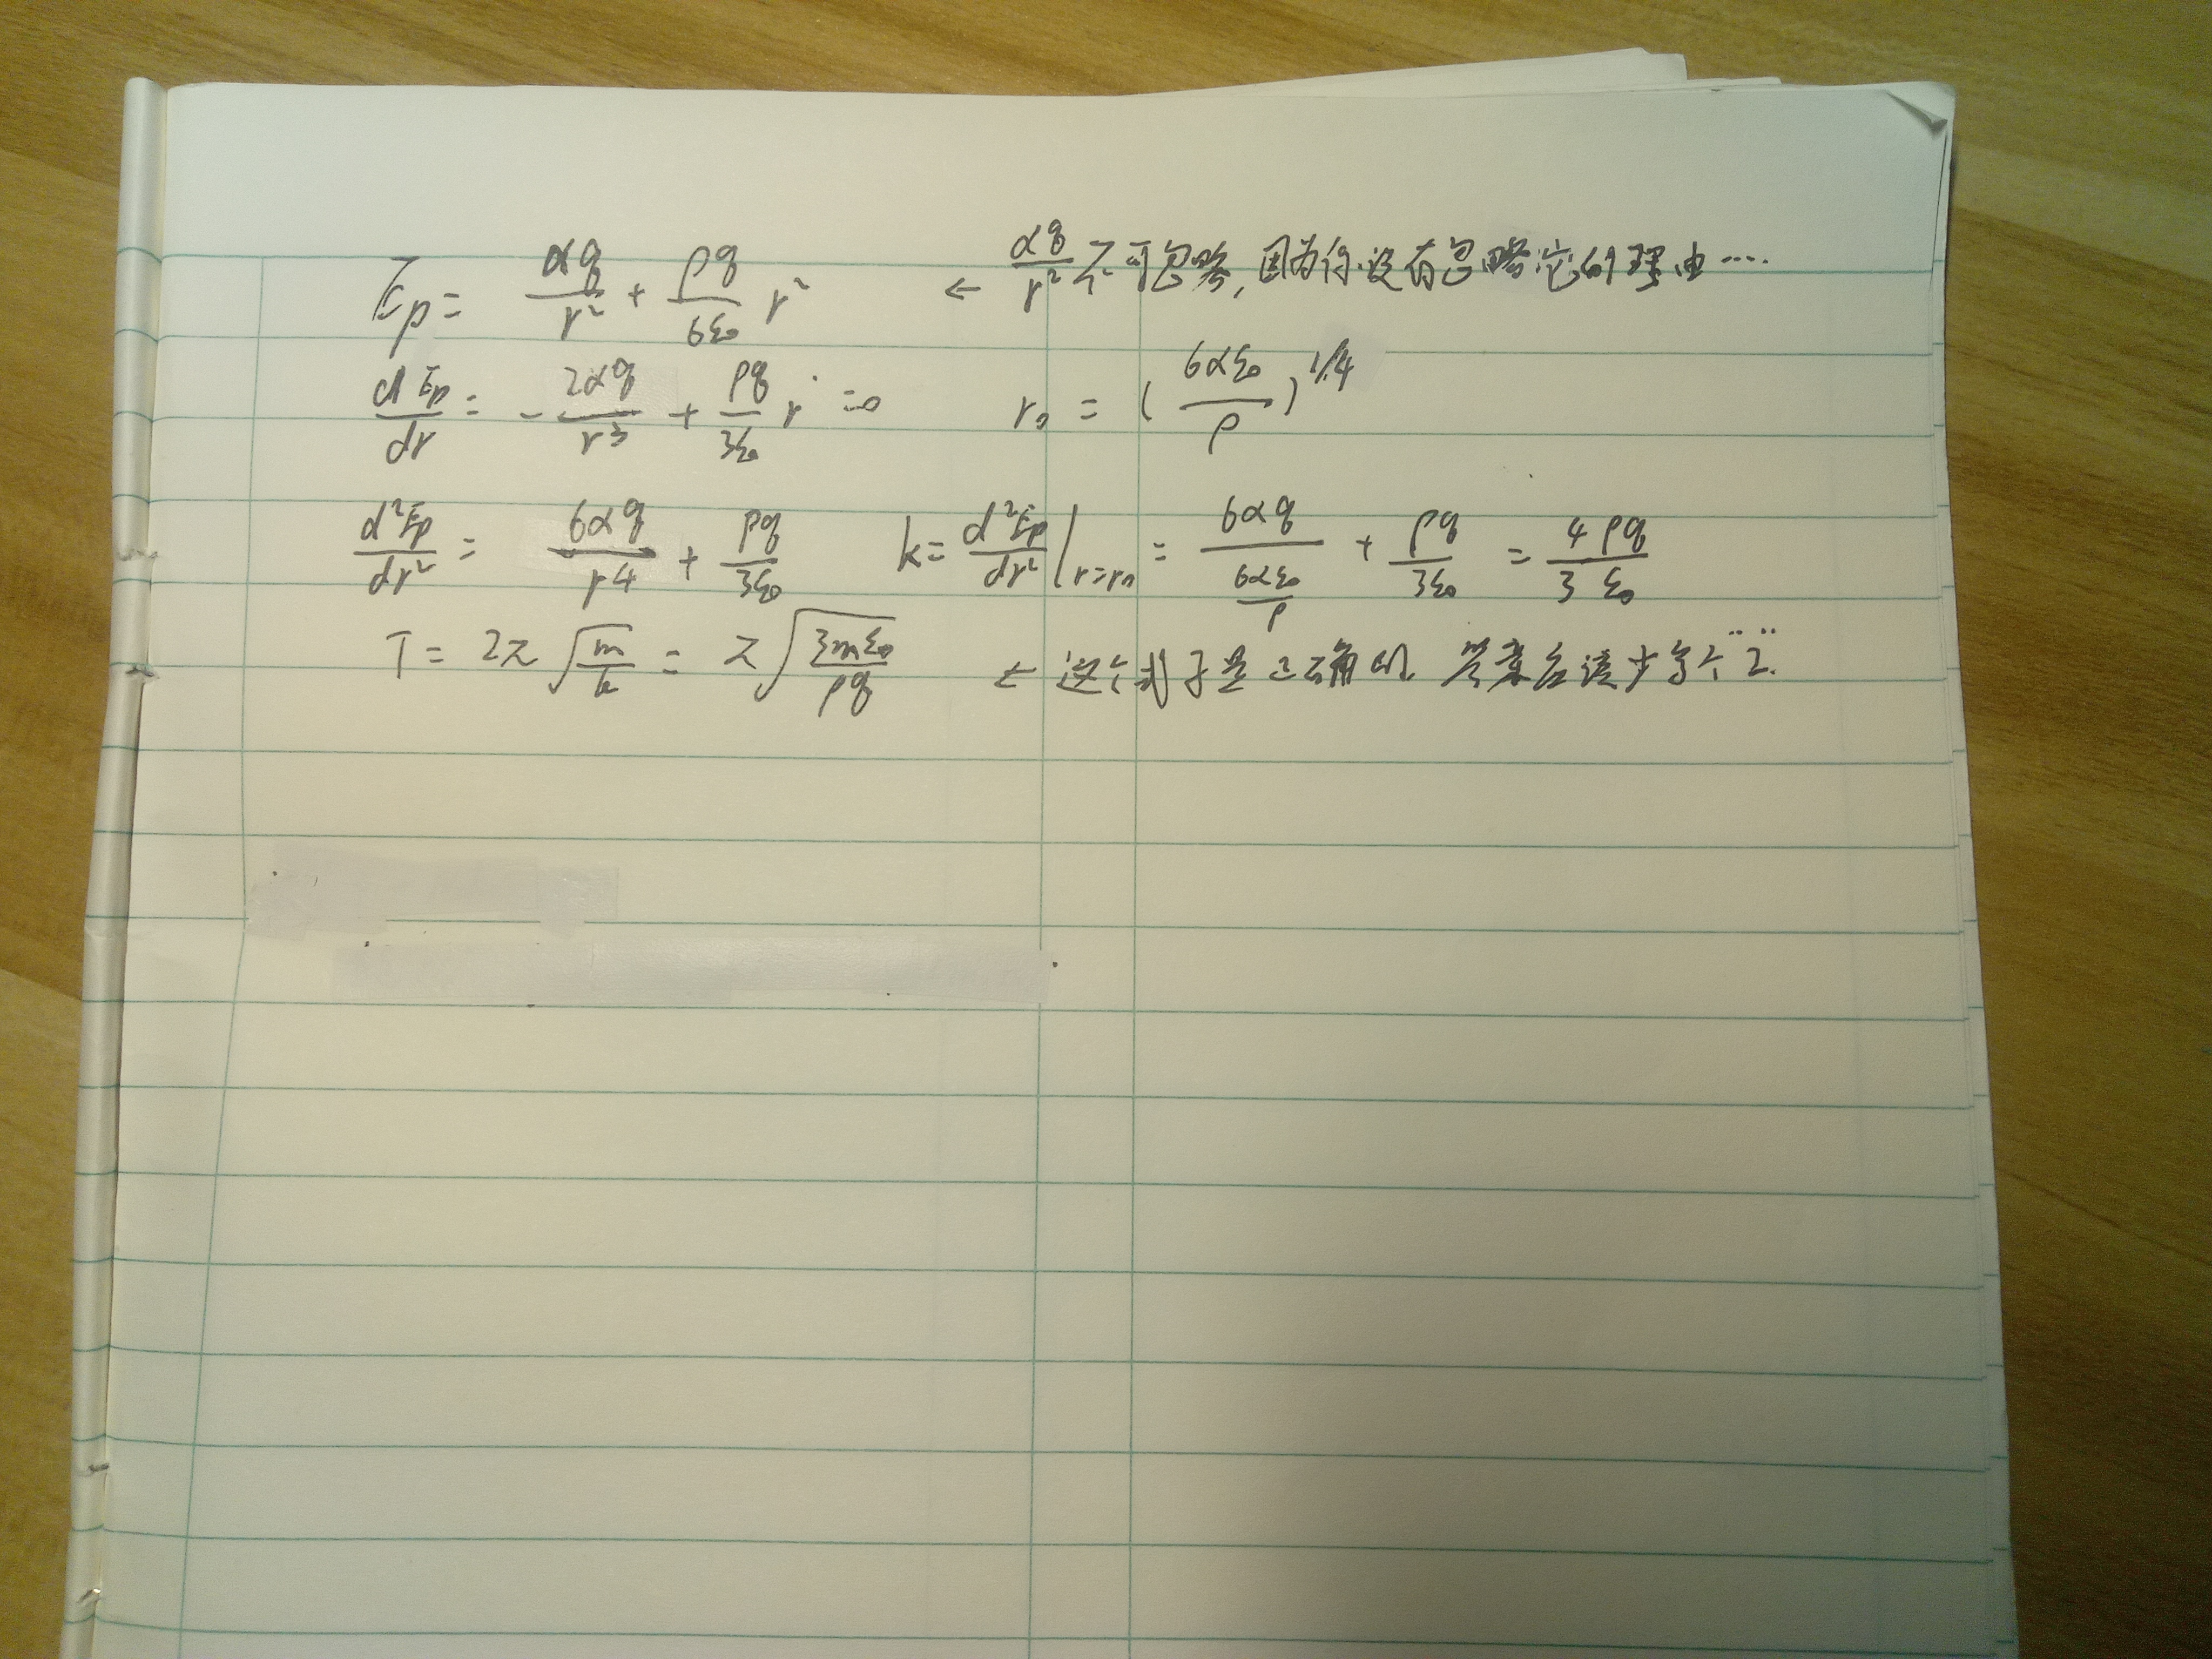 Ep = αq/r² + ρq/6ε₀ r² ← αq/r² 不可忽略,因为你没有忽略它的理由····
dEp/dr = - 2αq/r³ + ρq/3ε₀ r = 0 r₀ = (6αε₀/ρ)^1/4
d²Ep/dr² = 6αq/r⁴ + ρq/3ε₀ k = d²Ep/dr²|r=r₀ = 6αq/(6αε₀/ρ) + ρq/3ε₀ = 4ρq/3ε₀
T = 2π√(m/k) = π√(3mε₀/ρq) ← 这个式子是正确的. 答案应该少写个"2".